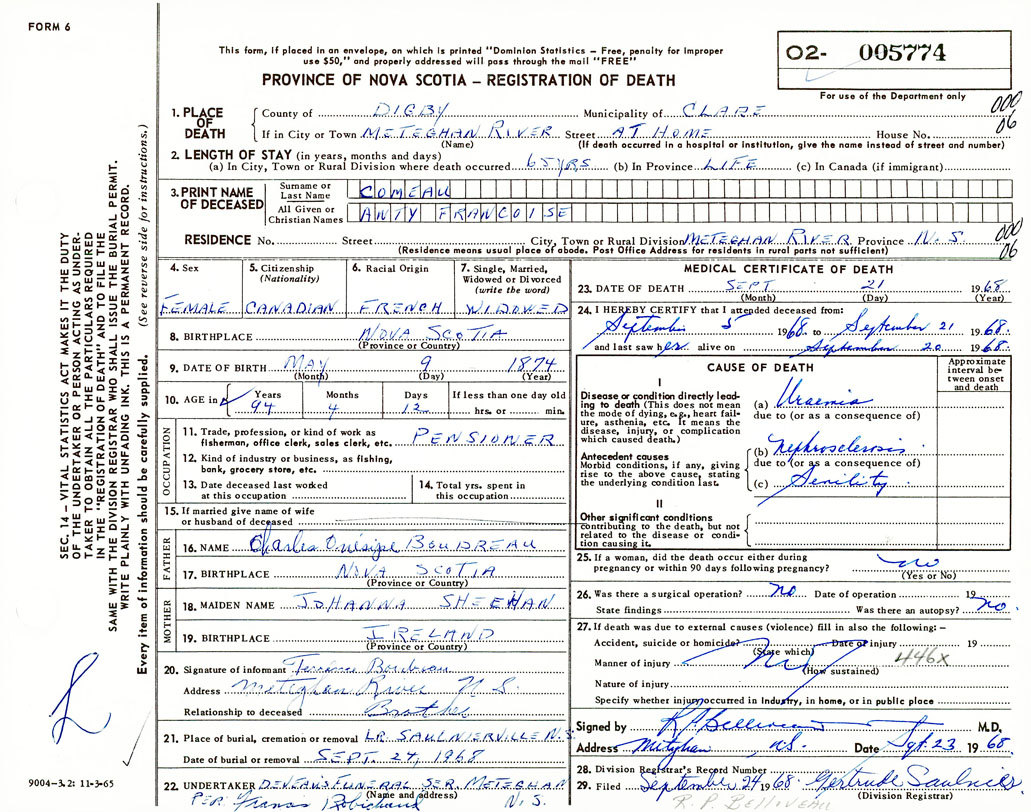 FORM 6
This form, if placed in an envelope, on which is printed "Dominion Statistics – Free, penalty for improper
use $50," and properly addressed will pass through the mail "FREE"
PROVINCE OF NOVA SCOTIA – REGISTRATION OF DEATH
02- 005774
For use of the Department only
SEC. 14 – VITAL STATISTICS ACT MAKES IT THE DUTY
OF THE UNDERTAKER OR PERSON ACTING AS UNDER-
TAKER TO OBTAIN ALL THE PARTICULARS REQUIRED
IN THE "REGISTRATION OF DEATH" AND TO FILE THE
SAME WITH THE DIVISION REGISTRAR WHO SHALL ISSUE THE BURIAL PERMIT.
WRITE PLAINLY WITH UNFADING INK. THIS IS A PERMANENT RECORD.
Every item of information should be carefully supplied. (See reverse side for instructions.)
1. PLACE OF DEATH County of DIGBY Municipality of CLARE 000
If in City or Town METEGHAN RIVER Street AT HOME House No. 06
(Name) (If death occurred in a hospital or institution, give the name instead of street and number)
2. LENGTH OF STAY (in years, months and days)
(a) In City, Town or Rural Division where death occurred 65 YRS (b) In Province LIFE (c) In Canada (if immigrant)
3. PRINT NAME OF DECEASED Surname or Last Name COMEAU
All Given or Christian Names ANTY FRANCOISE
RESIDENCE No. Street City, Town or Rural Division METEGHAN RIVER Province N. S. 000
(Residence means usual place of abode. Post Office Address for residents in rural parts not sufficient) 06
4. Sex 5. Citizenship (Nationality) 6. Racial Origin 7. Single, Married, Widowed or Divorced (write the word)
FEMALE CANADIAN FRENCH WIDOWED
8. BIRTHPLACE NOVA SCOTIA
(Province or Country)
9. DATE OF BIRTH MAY 9 1874
(Month) (Day) (Year)
10. AGE in Years Months Days If less than one day old
94 4 12 hrs. or min.
OCCUPATION
11. Trade, profession, or kind of work as
fisherman, office clerk, sales clerk, etc. PENSIONER
12. Kind of industry or business, as fishing,
bank, grocery store, etc.
13. Date deceased last worked
at this occupation
14. Total yrs. spent in
this occupation
15. If married give name of wife
or husband of deceased
FATHER
16. NAME Charles Onésipe BOUDREAU
17. BIRTHPLACE NOVA SCOTIA
(Province or Country)
MOTHER
18. MAIDEN NAME JOHANNA SHEEHAN
19. BIRTHPLACE IRELAND
(Province or Country)
20. Signature of informant Boudreau
Address Meteghan River N. S.
Relationship to deceased Brother
21. Place of burial, cremation or removal LR. SAULNIERVILLE N.S.
Date of burial or removal SEPT. 24, 1968
22. UNDERTAKER DEVEAU'S FUNERAL SER. METEGHAN
(Name and address) N. S.
PER. Robichaud
MEDICAL CERTIFICATE OF DEATH
23. DATE OF DEATH SEPT 21 1968
(Month) (Day) (Year)
24. I HEREBY CERTIFY that I attended deceased from:
September 5 1968 to September 21 1968
and last saw her alive on September 20 1968
CAUSE OF DEATH
Approximate interval between onset and death
I
Disease or condition directly lead-
ing to death (This does not mean
the mode of dying, e.g., heart fail-
ure, asthenia, etc. It means the
disease, injury, or complication
which caused death.)
(a) Uraemia
due to (or as a consequence of)
Antecedent causes
Morbid conditions, if any, giving
rise to the above cause, stating
the underlying condition last.
(b) Nephrosclerosis
due to (or as a consequence of)
(c) Senility
II
Other significant conditions
contributing to the death, but not
related to the disease or condi-
tion causing it.
25. If a woman, did the death occur either during
pregnancy or within 90 days following pregnancy? no
(Yes or No)
26. Was there a surgical operation? no Date of operation 19
State findings Was there an autopsy? no
27. If death was due to external causes (violence) fill in also the following: –
Accident, suicide or homicide? Date of injury 19
(State which) 446X
Manner of injury
(How sustained)
Nature of injury
Specify whether injury occurred in Industry, in home, or in public place
Signed by Belliveau M.D.
Address Meteghan N.S. Date Sept. 23 1968
28. Division Registrar's Record Number
29. Filed September 24 1968 Gertrude Saulnier
(Division Registrar)
R. P. BELLIVEAU
9004–3.2: 11-3-65